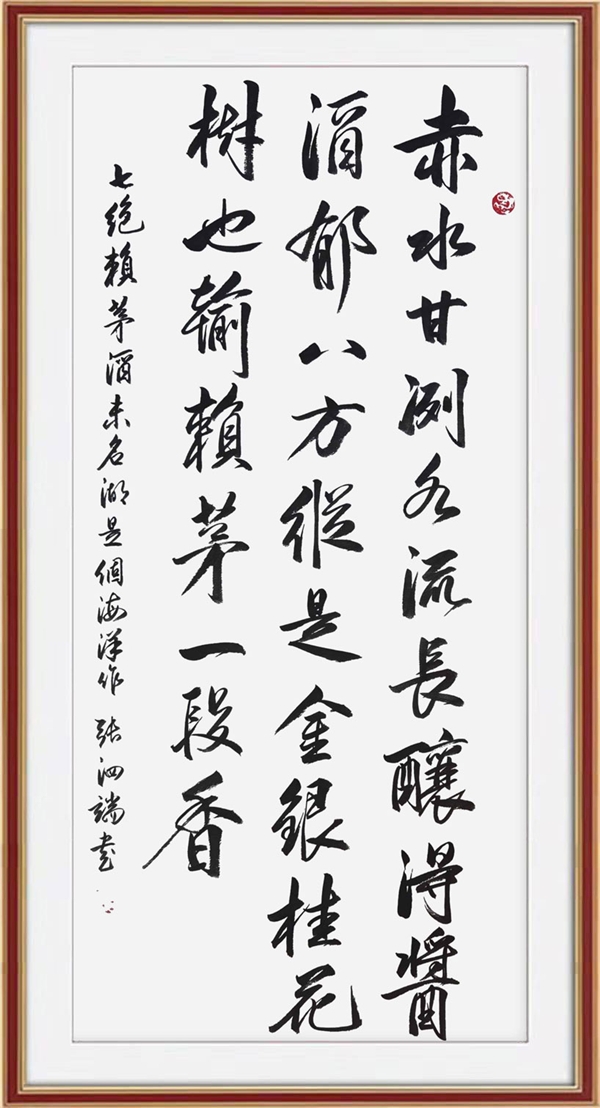 赤水甘洌久流長釀得醬
酒郁八方縱是金銀桂花
樹也輸賴茅一段香
七絕賴茅酒未名湖是個海洋作 張泗端書